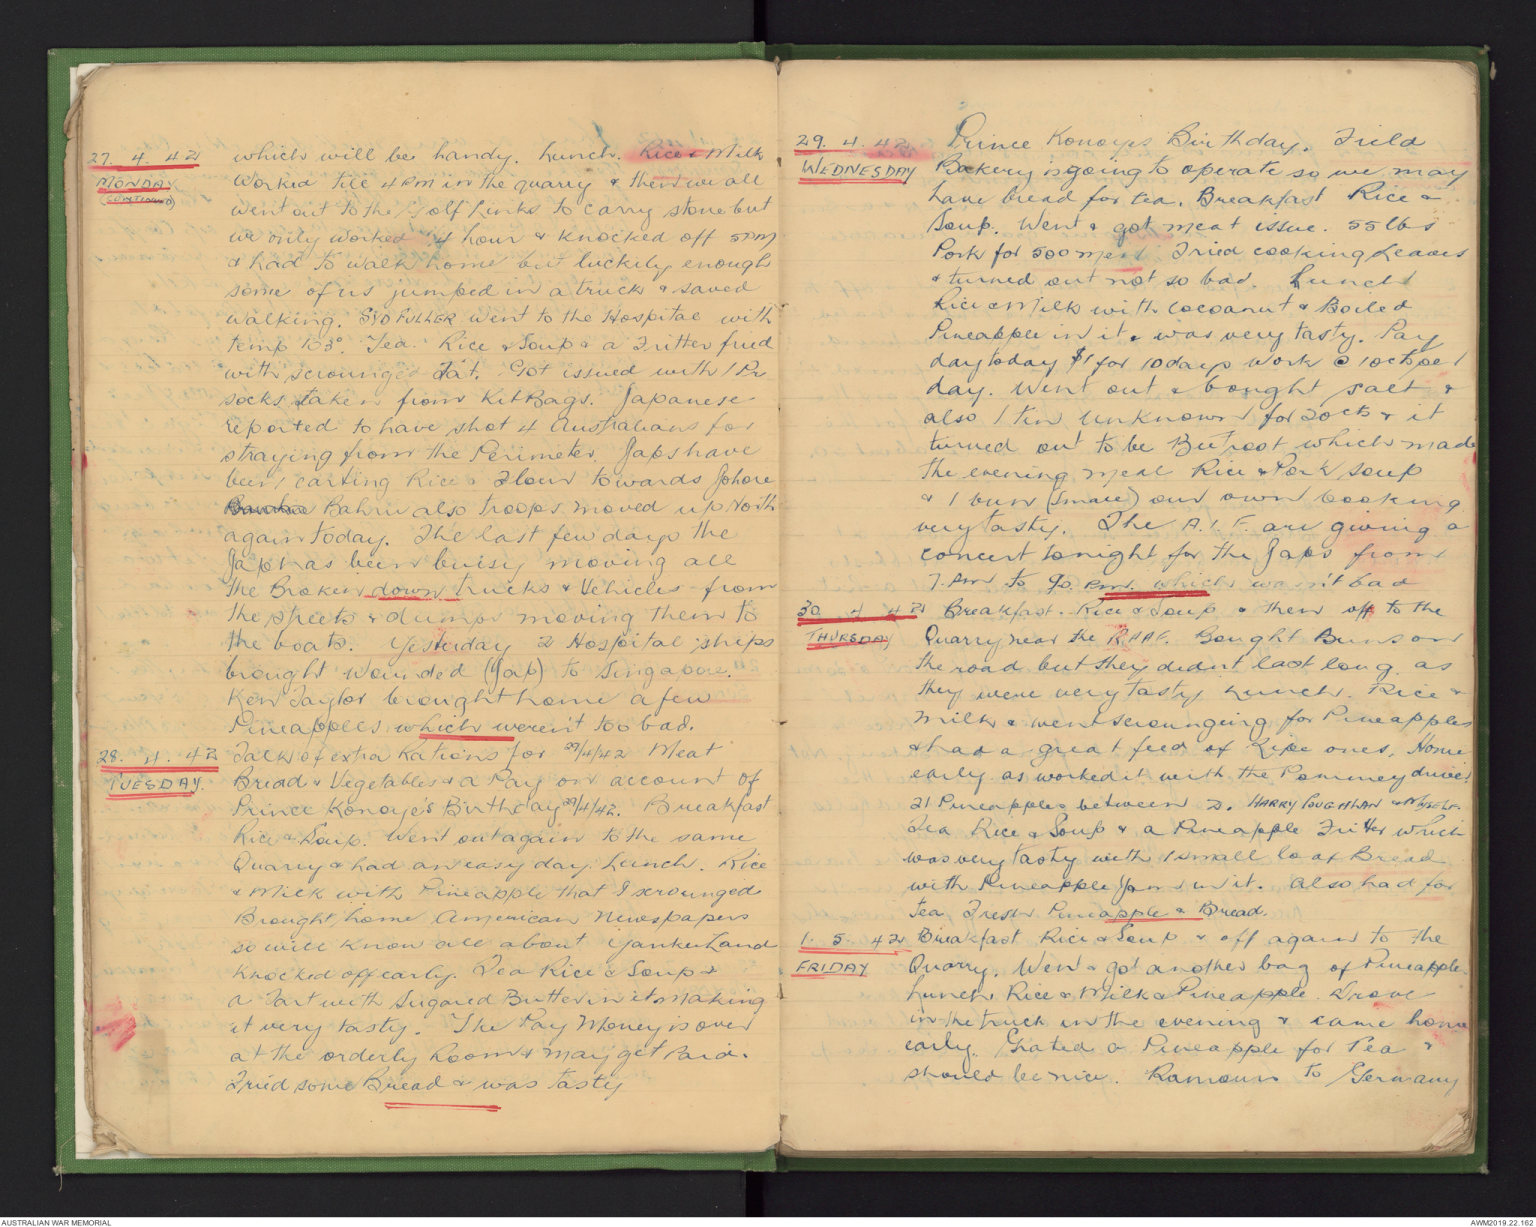 27. 4. 42
MONDAY
(CONTINUED)
which will be handy. Lunch. Rice & Milk
Worked till 4 PM in the quarry & then we all
went out to the Golf Links to carry stone but
we only worked ½ hour & knocked off 5PM
& had to walk home but luckily enough
some of us jumped in a truck & saved
walking. SYD FULLER went to the Hospital with
temp 103°. Tea. Rice & Soup & a Fritter fried
with scrounged Fat. Got issued with 1 Pr
socks taken from Kit Bags. Japanese
reported to have shot 4 Australians for
straying from the Perimeter. Japs have
been carting Rice & Flour towards Johore
Bahru also troops moved up North
again today. The last few days the
Japs has been buisy moving all
the Broken down trucks & Vehicles from
the streets & dumps moving them to
the boats. Yesterday 2 Hospital ships
brought wounded (Jap) to Singapore.
Ken Taylor brought home a few
Pineapples which weren't too bad.
28. 4. 42
TUESDAY.
Talk of extra Rations for 29/4/42 Meat
Bread & Vegetables & a Pay on account of
Prince Konoye's Birthday 29/4/42. Breakfast
Rice & Soup. Went out again to the same
Quarry & had an easy day. Lunch. Rice
& Milk with Pineapple that I scrounged
Brought home American Newspapers
so will know all about Yankee Land
Knocked off early. Tea Rice & Soup &
a Tart with Sugared Butter in it making
it very tasty. The Pay Money is over
at the orderly Room & may get Paid.
Fried some Bread & was tasty
29. 4. 42
WEDNESDAY
Prince Konoyes Birthday. Field
Bakery is going to operate so we may
have bread for tea. Breakfast Rice &
Soup. Went & got meat issue. 55 lbs
Pork for 500 men. Tried cooking Leaves
& turned out not so bad. Lunch
Rice & Milk with cocoanut & Boiled
Pineapple in it & was very tasty. Pay
day today $1 for 10 days work @ 10cts per
day. Went out & bought salt &
also 1 Tin unknown for 20cts & it
turned out to be Beetroot which made
the evening meal Rice & Pork soup
& 1 bun (small) our own cooking
very tasty. The A.I.F. are giving a
concert tonight for the Japs from
7. PM to 9 PM which wasn't bad
30. 4. 42
THURSDAY
Breakfast. Rice & Soup & then off to the
Quarry near the RAAF. Bought Buns on
the road but they didn't last long as
they were very tasty Lunch. Rice &
Milk & went scrounging for Pineapples
& had a great feed of Ripe ones. Home
early as worked it with the Pommey driver.
21 Pineapples between 2. HARRY & MYSELF.
Tea Rice & Soup & a Pineapple Fritter which
was very tasty with 1 small loaf Bread
with Pineapple Jam in it. Also had for
tea Fresh Pineapple & Bread.
1. 5. 42
FRIDAY
Breakfast Rice & Soup & off again to the
Quarry. Went & got another bag of Pineapple
Lunch Rice & Milk & Pineapple. Drove
in the truck in the evening & came home
early. Grated a Pineapple for Tea &
should be nice. Ramours to Germany
AUSTRALIAN WAR MEMORIAL
AWM2019.22.162